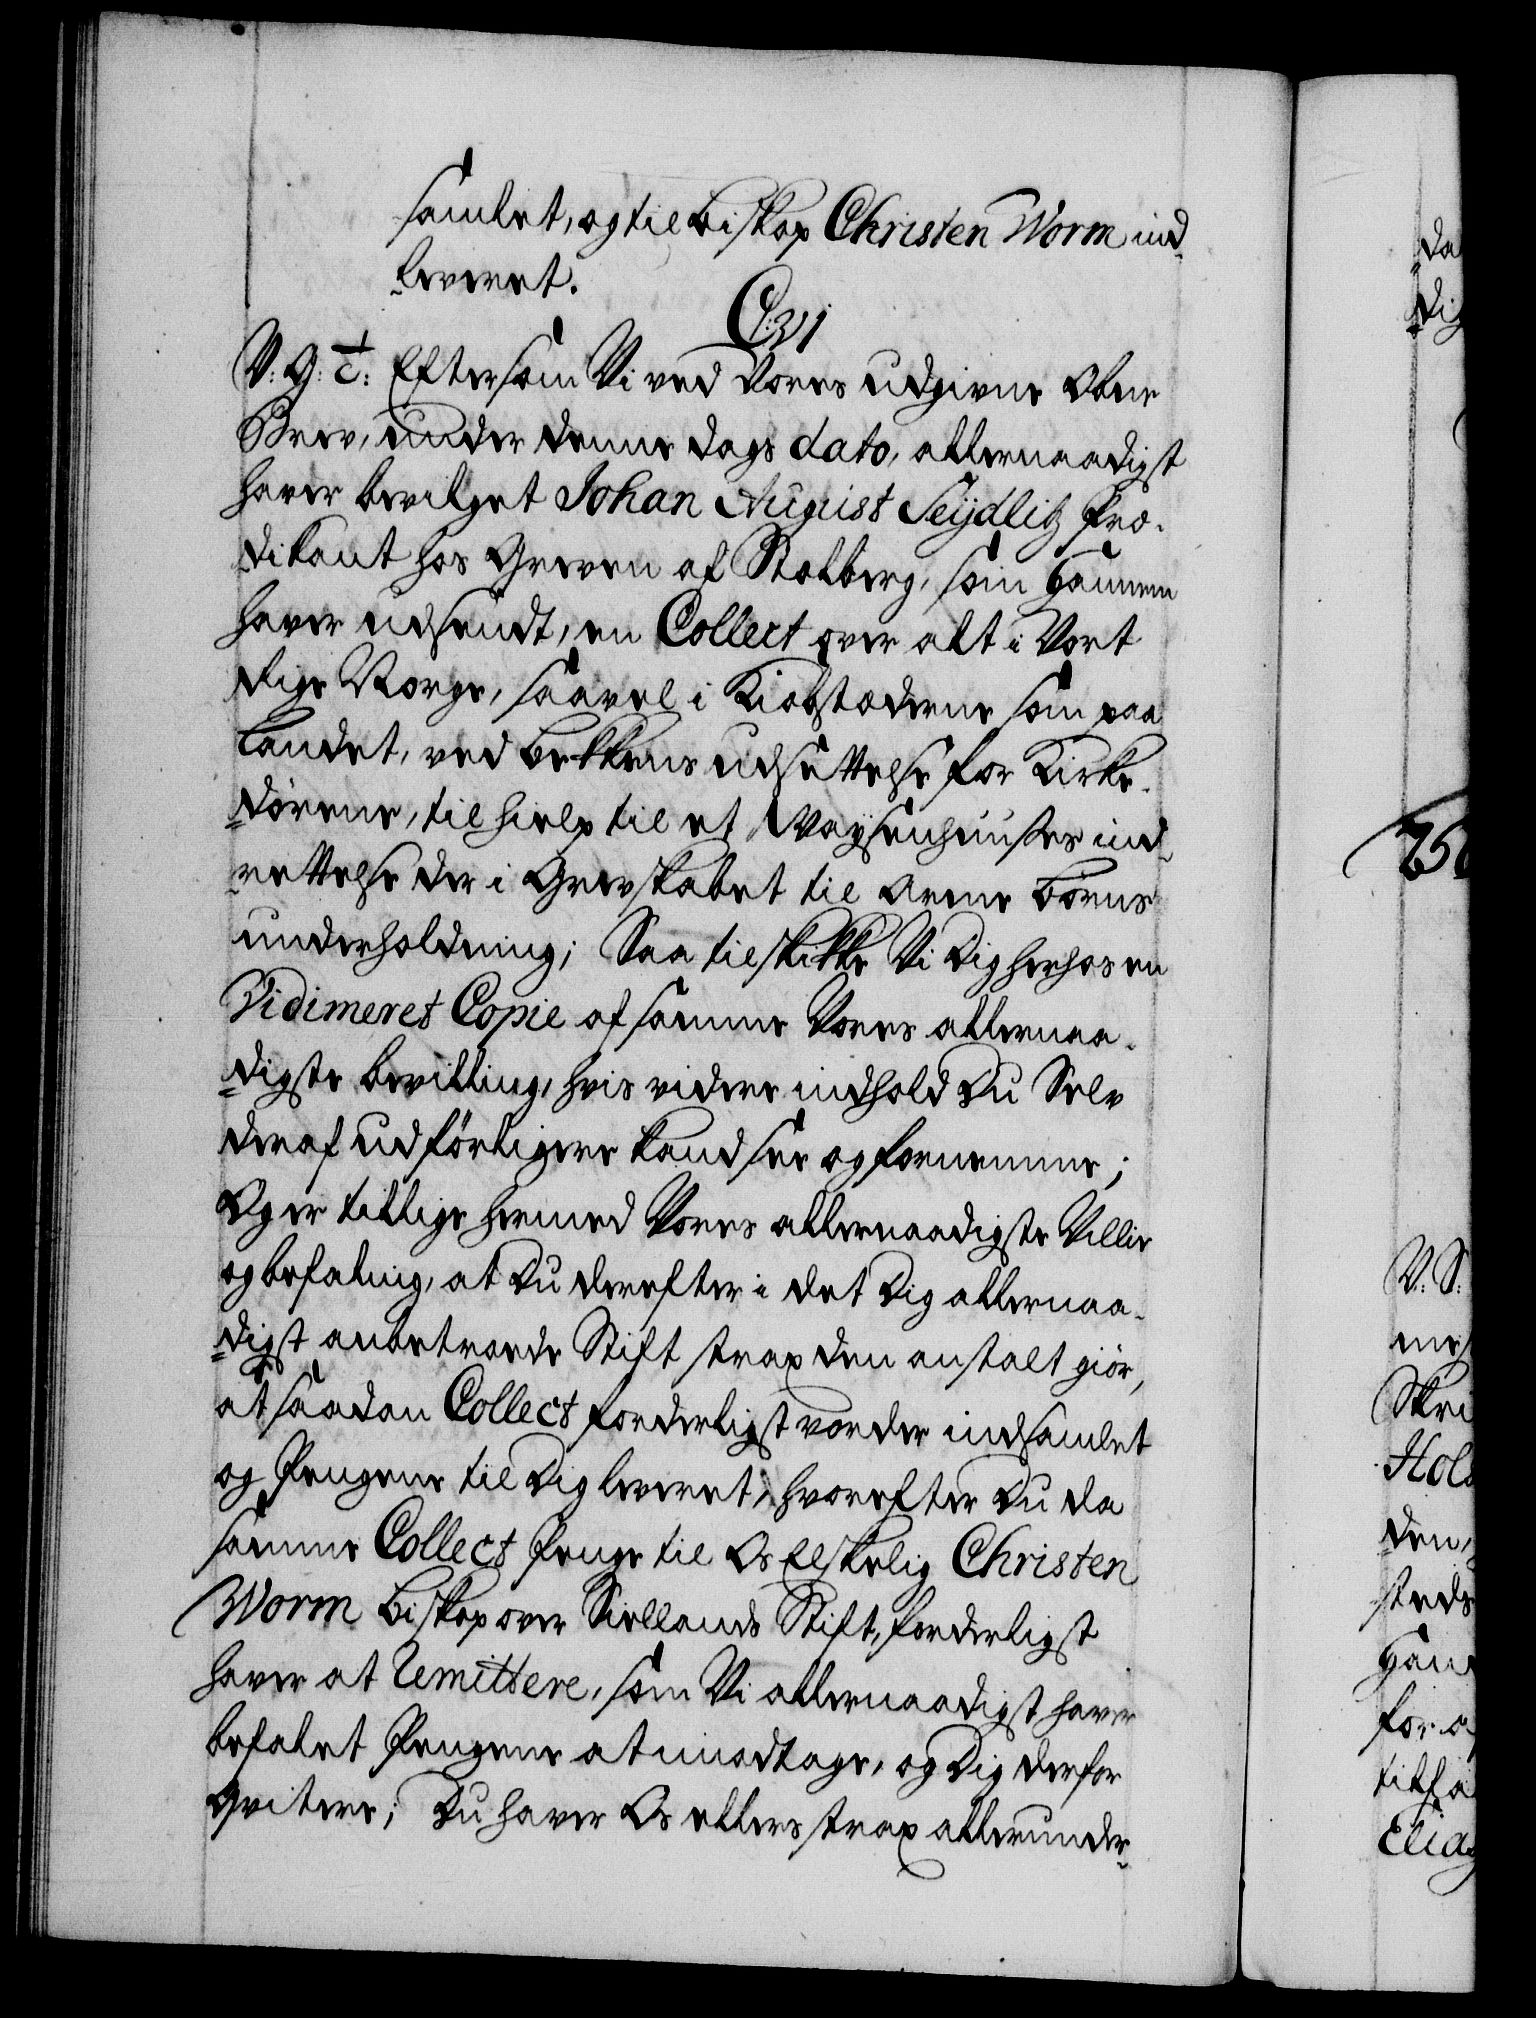 samlet, og til Biskop Christen Worm ind-
leveret.
C:VI
V: G: t: Eftersom Vi ved Vores udgivne Obne
Brev, under denne Dags dato, allernaadigst
haver bevilget Johan August Seijdlitz Præ-
dikant hos Greven af Stolberg, som hannem
haver udsendt, en Collect over alt i Vort
Rige Norge, saavel i Kiøbstæderne som paa
Landet, ved Bekkens udsættelse for Kirke-
dørene, til hielp til et Waysenhuuses ind-
rettelse der i Grevskabet til Arme Børns
underholdning; Saa tilskikke Vi Dig herhos en
Vidimeret Copie af samme Vores allernaa-
digste bevilling, hvis videre indhold Du Selv
deraf udførligere kand see og fornemme;
Og er tillige hermed Vores allernaadigste Villie
og befaling, at Du derefter i det Dig allernaa-
digst anbetroede Stift strax den anstalt giør,
at saadan Collect forderligst vorder indsamlet
og Pengene til Dig leveret, hvorefter Du da
samme Collect Penge til Os Elskelig Christen
Worm Biskop over Siellands Stift, forderligst
haver at remittere, som Vi allernaadigst haver
befalet Pengene at imodtage, og Dig derfor
qvitere; Du haver Os ellers strax allerunder-